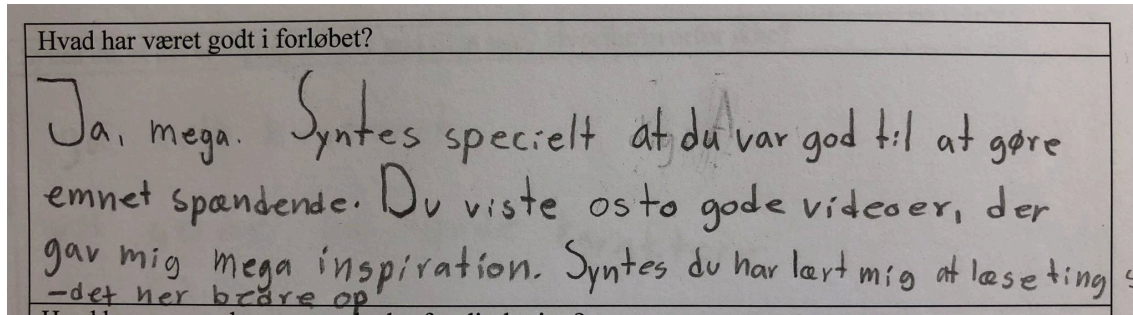 Hvad har været godt i forløbet?
Ja, mega. Syntes specielt at du var god til at gøre
emnet spændende. Du viste os to gode videoer, der
gav mig mega inspiration. Syntes du har lært mig at læse ting s
-det her bedre op